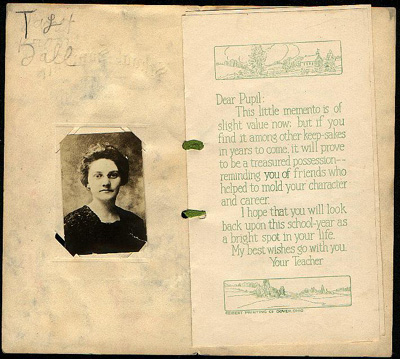 Dear Pupil:
This little memento is of
slight value now; but if you
find it among other keep-sakes
in years to come, it will prove
to be a treasured possession--
reminding you of friends who
helped to mold your character
and career.
I hope that you will look
back upon this school-year as
a bright spot in your life.
My best wishes go with you.
Your Teacher